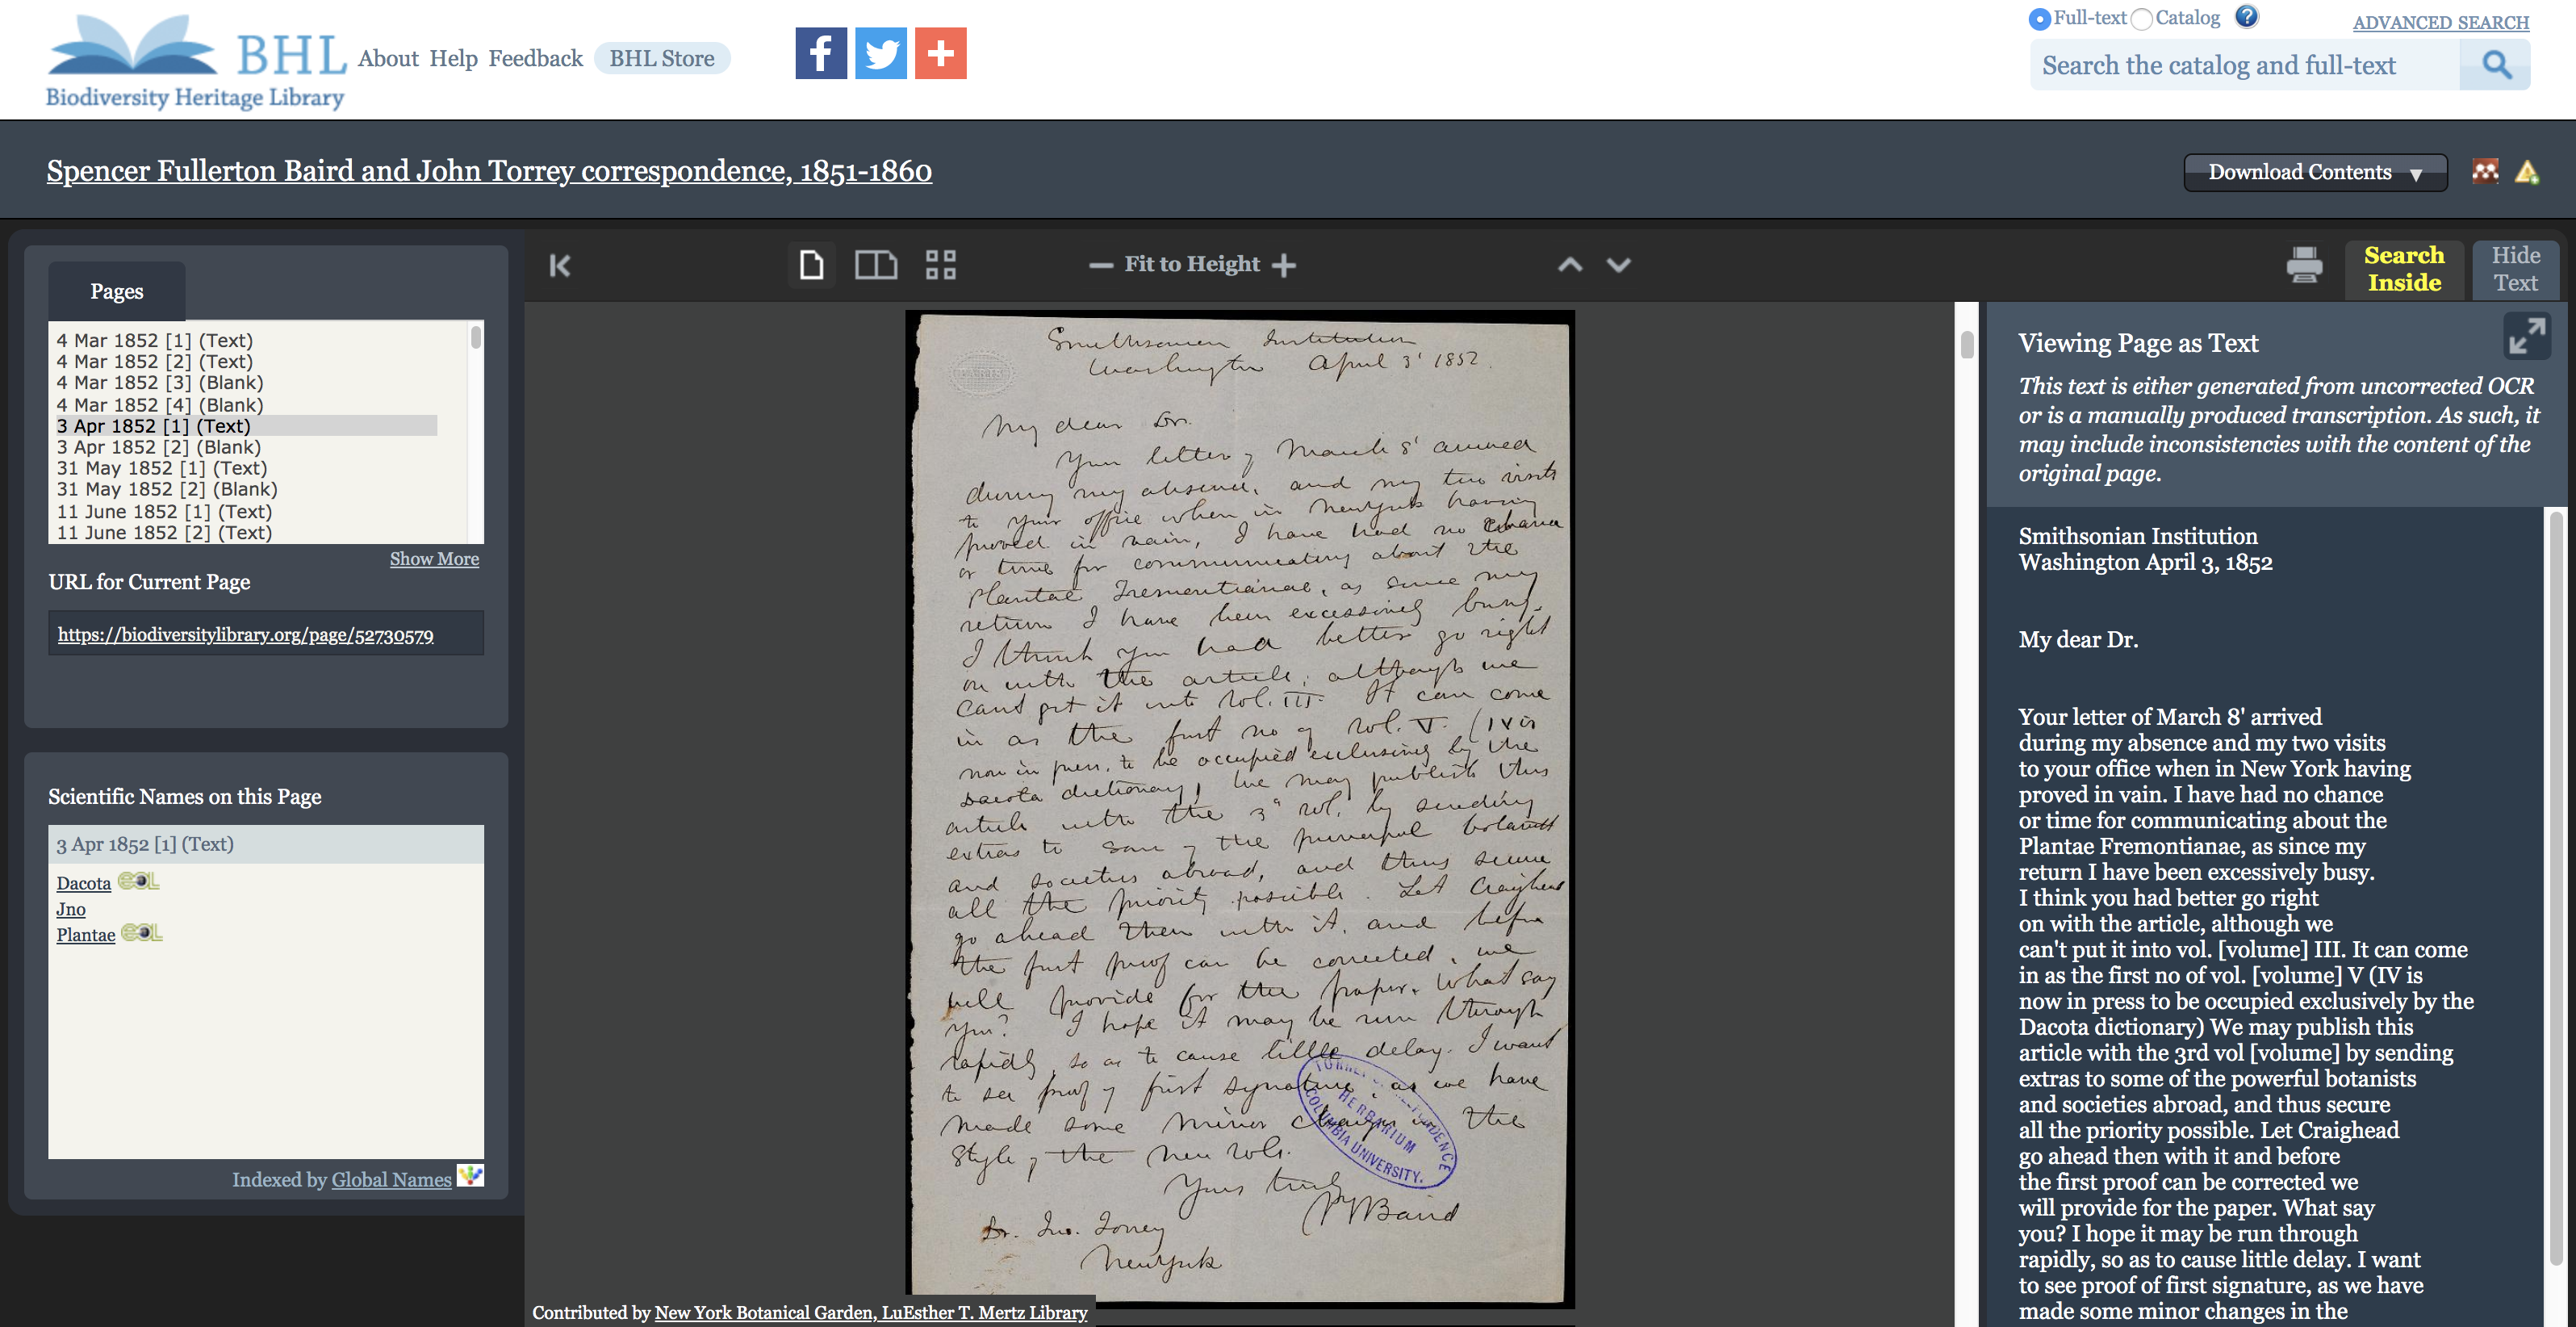 BHL
Biodiversity Heritage Library
About Help Feedback BHL Store
Full-text Catalog
ADVANCED SEARCH
Search the catalog and full-text
Spencer Fullerton Baird and John Torrey correspondence, 1851-1860
Download Contents
Pages
4 Mar 1852 [1] (Text)
4 Mar 1852 [2] (Text)
4 Mar 1852 [3] (Blank)
4 Mar 1852 [4] (Blank)
3 Apr 1852 [1] (Text)
3 Apr 1852 [2] (Blank)
31 May 1852 [1] (Text)
31 May 1852 [2] (Blank)
11 June 1852 [1] (Text)
11 June 1852 [2] (Text)
Show More
URL for Current Page
https://biodiversitylibrary.org/page/52730579
Scientific Names on this Page
3 Apr 1852 [1] (Text)
Dacota EOL
Jno
Plantae EOL
Indexed by Global Names
Fit to Height
Search
Inside
Hide
Text
Smithsonian Institution
Washington April 3' 1852.
PARIS
My dear Dr.
Your letter of March 8' arrived
during my absence, and my two visits
to your office when in New York having
proved in vain, I have had no chance
or time for communicating about the
Plantae Fremontianae, as since my
return I have been excessively busy.
I think you had better go right
on with the article, although we
cant put it into Vol. III. It can come
in as the first no of Vol. V. (IV is
now in press, to be occupied exclusively by the
Dacota dictionary) We may publish this
article with the 3d vol. by sending
extras to some of the principal botanists
and societies abroad, and thus secure
all the priority possible. Let Craighead
go ahead then with it, and before
the first proof can be corrected, we
will provide for the paper. What say
you? I hope it may be run through
rapidly, so as to cause little delay. I want
to see proof of first signature, as we have
made some minor changes in the
style of the new vols.
Yours truly
Baird
Dr. Jno. Torrey
New York
HERBARIUM
COLUMBIA UNIVERSITY.
Contributed by New York Botanical Garden, LuEsther T. Mertz Library
Viewing Page as Text
This text is either generated from uncorrected OCR
or is a manually produced transcription. As such, it
may include inconsistencies with the content of the
original page.
Smithsonian Institution
Washington April 3, 1852
My dear Dr.
Your letter of March 8' arrived
during my absence and my two visits
to your office when in New York having
proved in vain. I have had no chance
or time for communicating about the
Plantae Fremontianae, as since my
return I have been excessively busy.
I think you had better go right
on with the article, although we
can't put it into vol. [volume] III. It can come
in as the first no of vol. [volume] V (IV is
now in press to be occupied exclusively by the
Dacota dictionary) We may publish this
article with the 3rd vol [volume] by sending
extras to some of the powerful botanists
and societies abroad, and thus secure
all the priority possible. Let Craighead
go ahead then with it and before
the first proof can be corrected we
will provide for the paper. What say
you? I hope it may be run through
rapidly, so as to cause little delay. I want
to see proof of first signature, as we have
made some minor changes in the